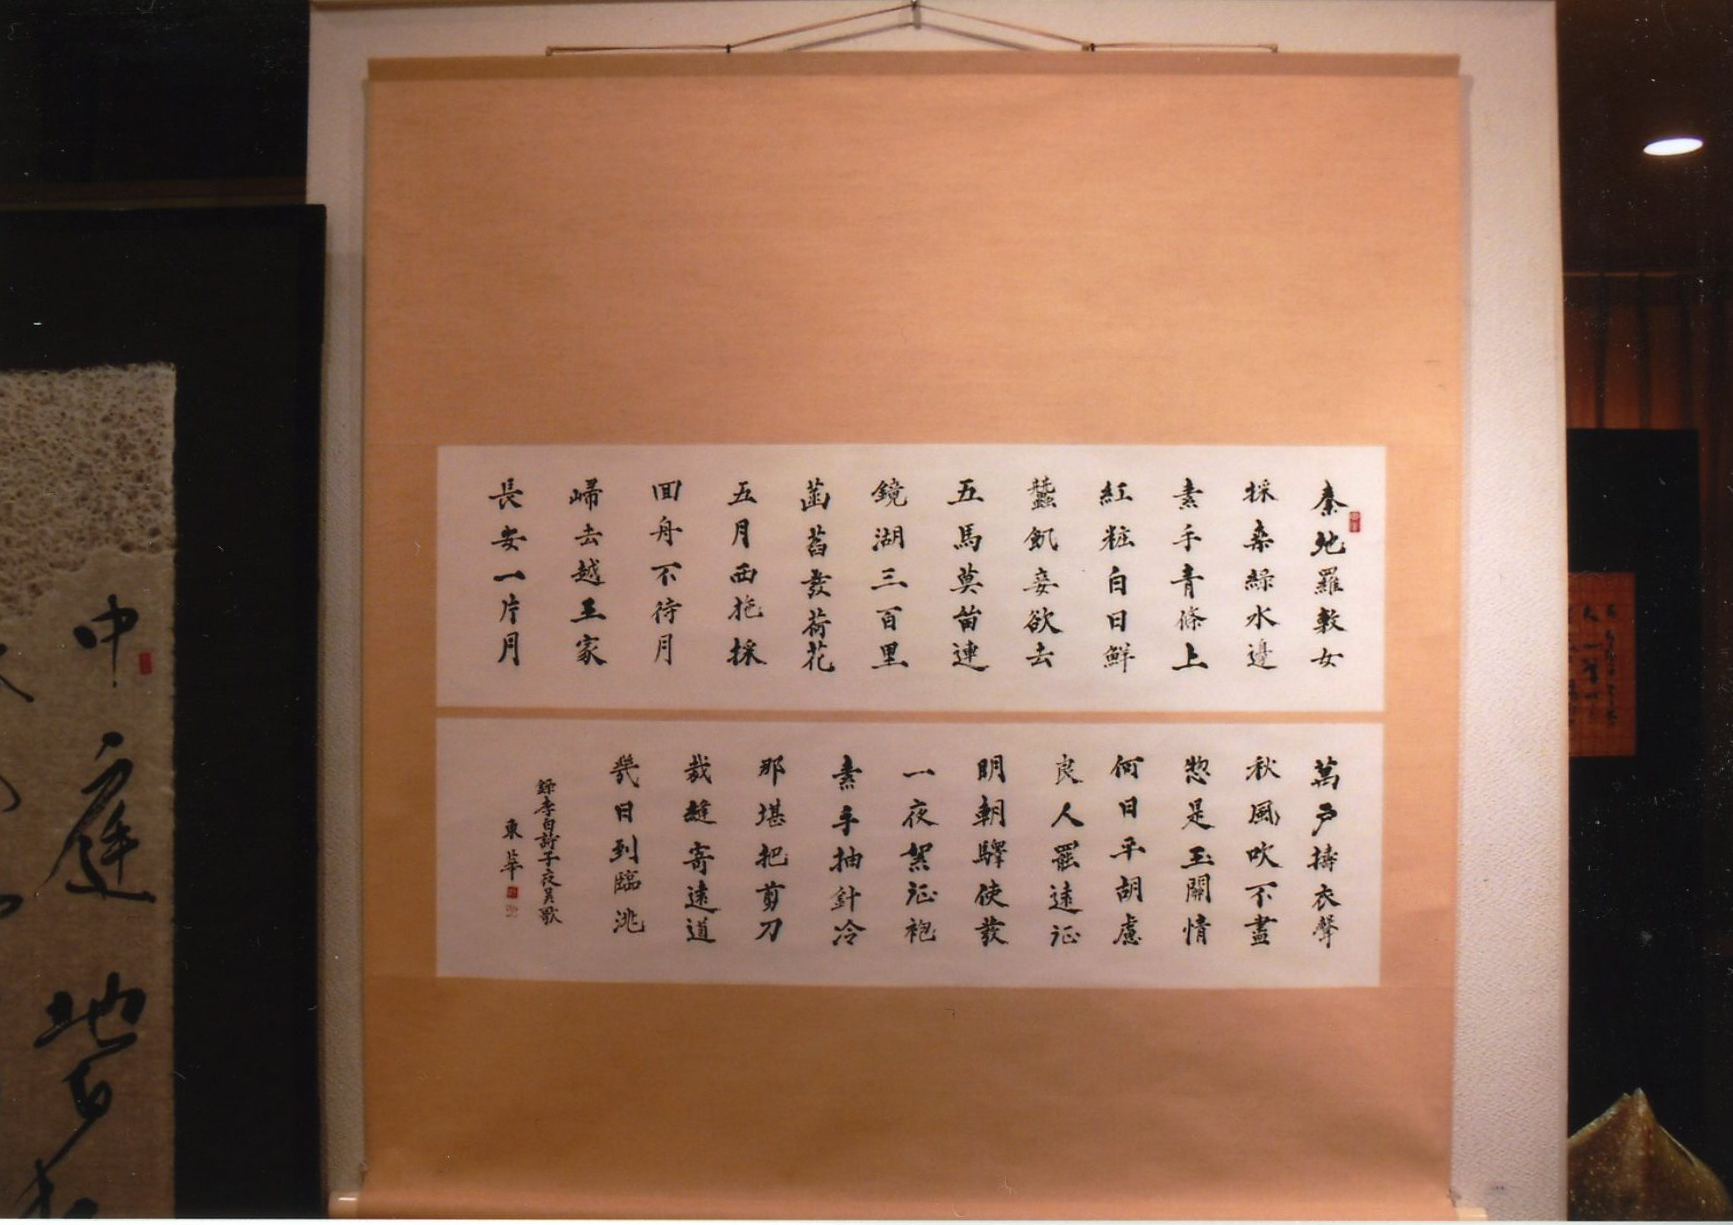 秦地羅敷女
採桒緑水邊
素手青條上
紅粧白日鮮
蠶飢妾欲去
五馬莫留連
鏡湖三百里
菡萏發荷花
五月西施採
回舟不待月
歸去越王家
長安一片月
萬戸擣衣聲
秋風吹不盡
惣是玉關情
何日平胡虜
良人罷遠征
明朝驛使發
一夜絮征袍
素手抽針冷
那堪把剪刀
裁縫寄遠道
幾日到臨洮
録李白詩子夜呉歌
東華
中庭地白